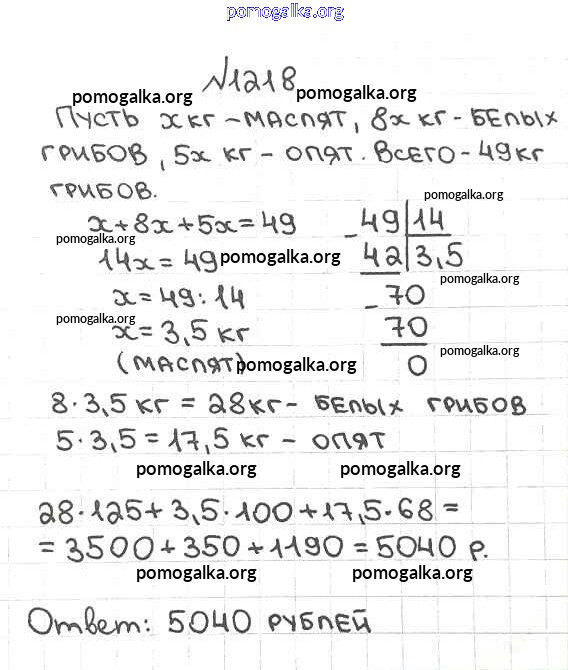 pomogalka.org
№1218
pomogalka.org pomogalka.org
Пусть x кг - маслят, 8x кг - белых
грибов, 5x кг - опят. Всего - 49 кг
грибов.
pomogalka.org
x+8x+5x=49
49|14
pomogalka.org
14x=49
pomogalka.org
- 42|3,5
pomogalka.org
x=49:14
- 70
pomogalka.org
x=3,5 кг
70
pomogalka.org
(маслят)
pomogalka.org
0
8·3,5 кг = 28 кг - белых грибов
5·3,5=17,5 кг - опят
pomogalka.org pomogalka.org
28·125+3,5·100+17,5·68=
=3500+350+1190=5040 р.
pomogalka.org pomogalka.org
Ответ: 5040 рублей